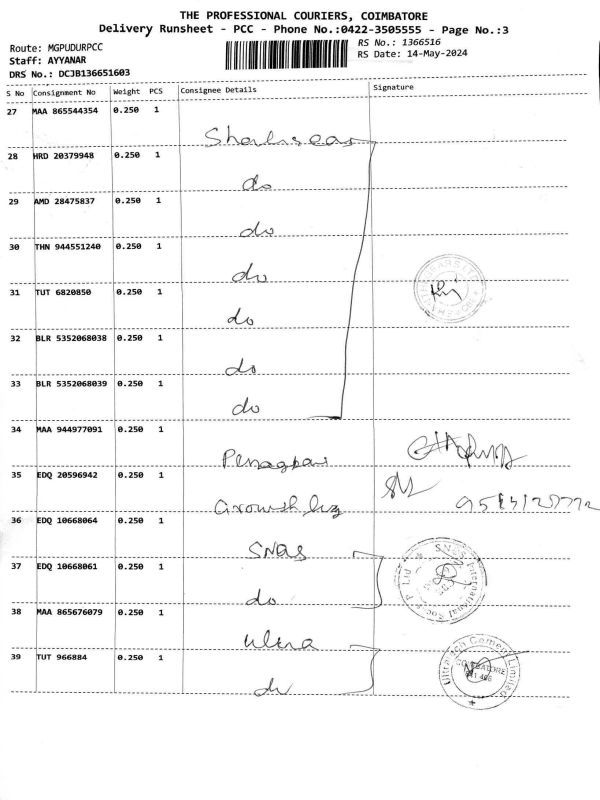 THE PROFESSIONAL COURIERS, COIMBATORE
Delivery Runsheet - PCC - Phone No.:0422-3505555 - Page No.:3
Route: MGPUDURPCC
RS No.: 1366516
Staff: AYYANAR
RS Date: 14-May-2024
DRS No.: DCJB136651603
S No Consignment No Weight PCS Consignee Details Signature
27 MAA 865544354 0.250 1
28 HRD 20379948 0.250 1
do
29 AMD 28475837 0.250 1
do
30 THN 944551240 0.250 1
do
31 TUT 6820850 0.250 1
do
32 BLR 5352068038 0.250 1
do
33 BLR 5352068039 0.250 1
do
34 MAA 944977091 0.250 1
35 EDQ 20596942 0.250 1
36 EDQ 10668064 0.250 1
SNQS
37 EDQ 10668061 0.250 1
do
SNQS International Socks P Ltd
38 MAA 865676079 0.250 1
Ultra
39 TUT 966884 0.250 1
do
Ultratech Cement Limited
COIMBATORE